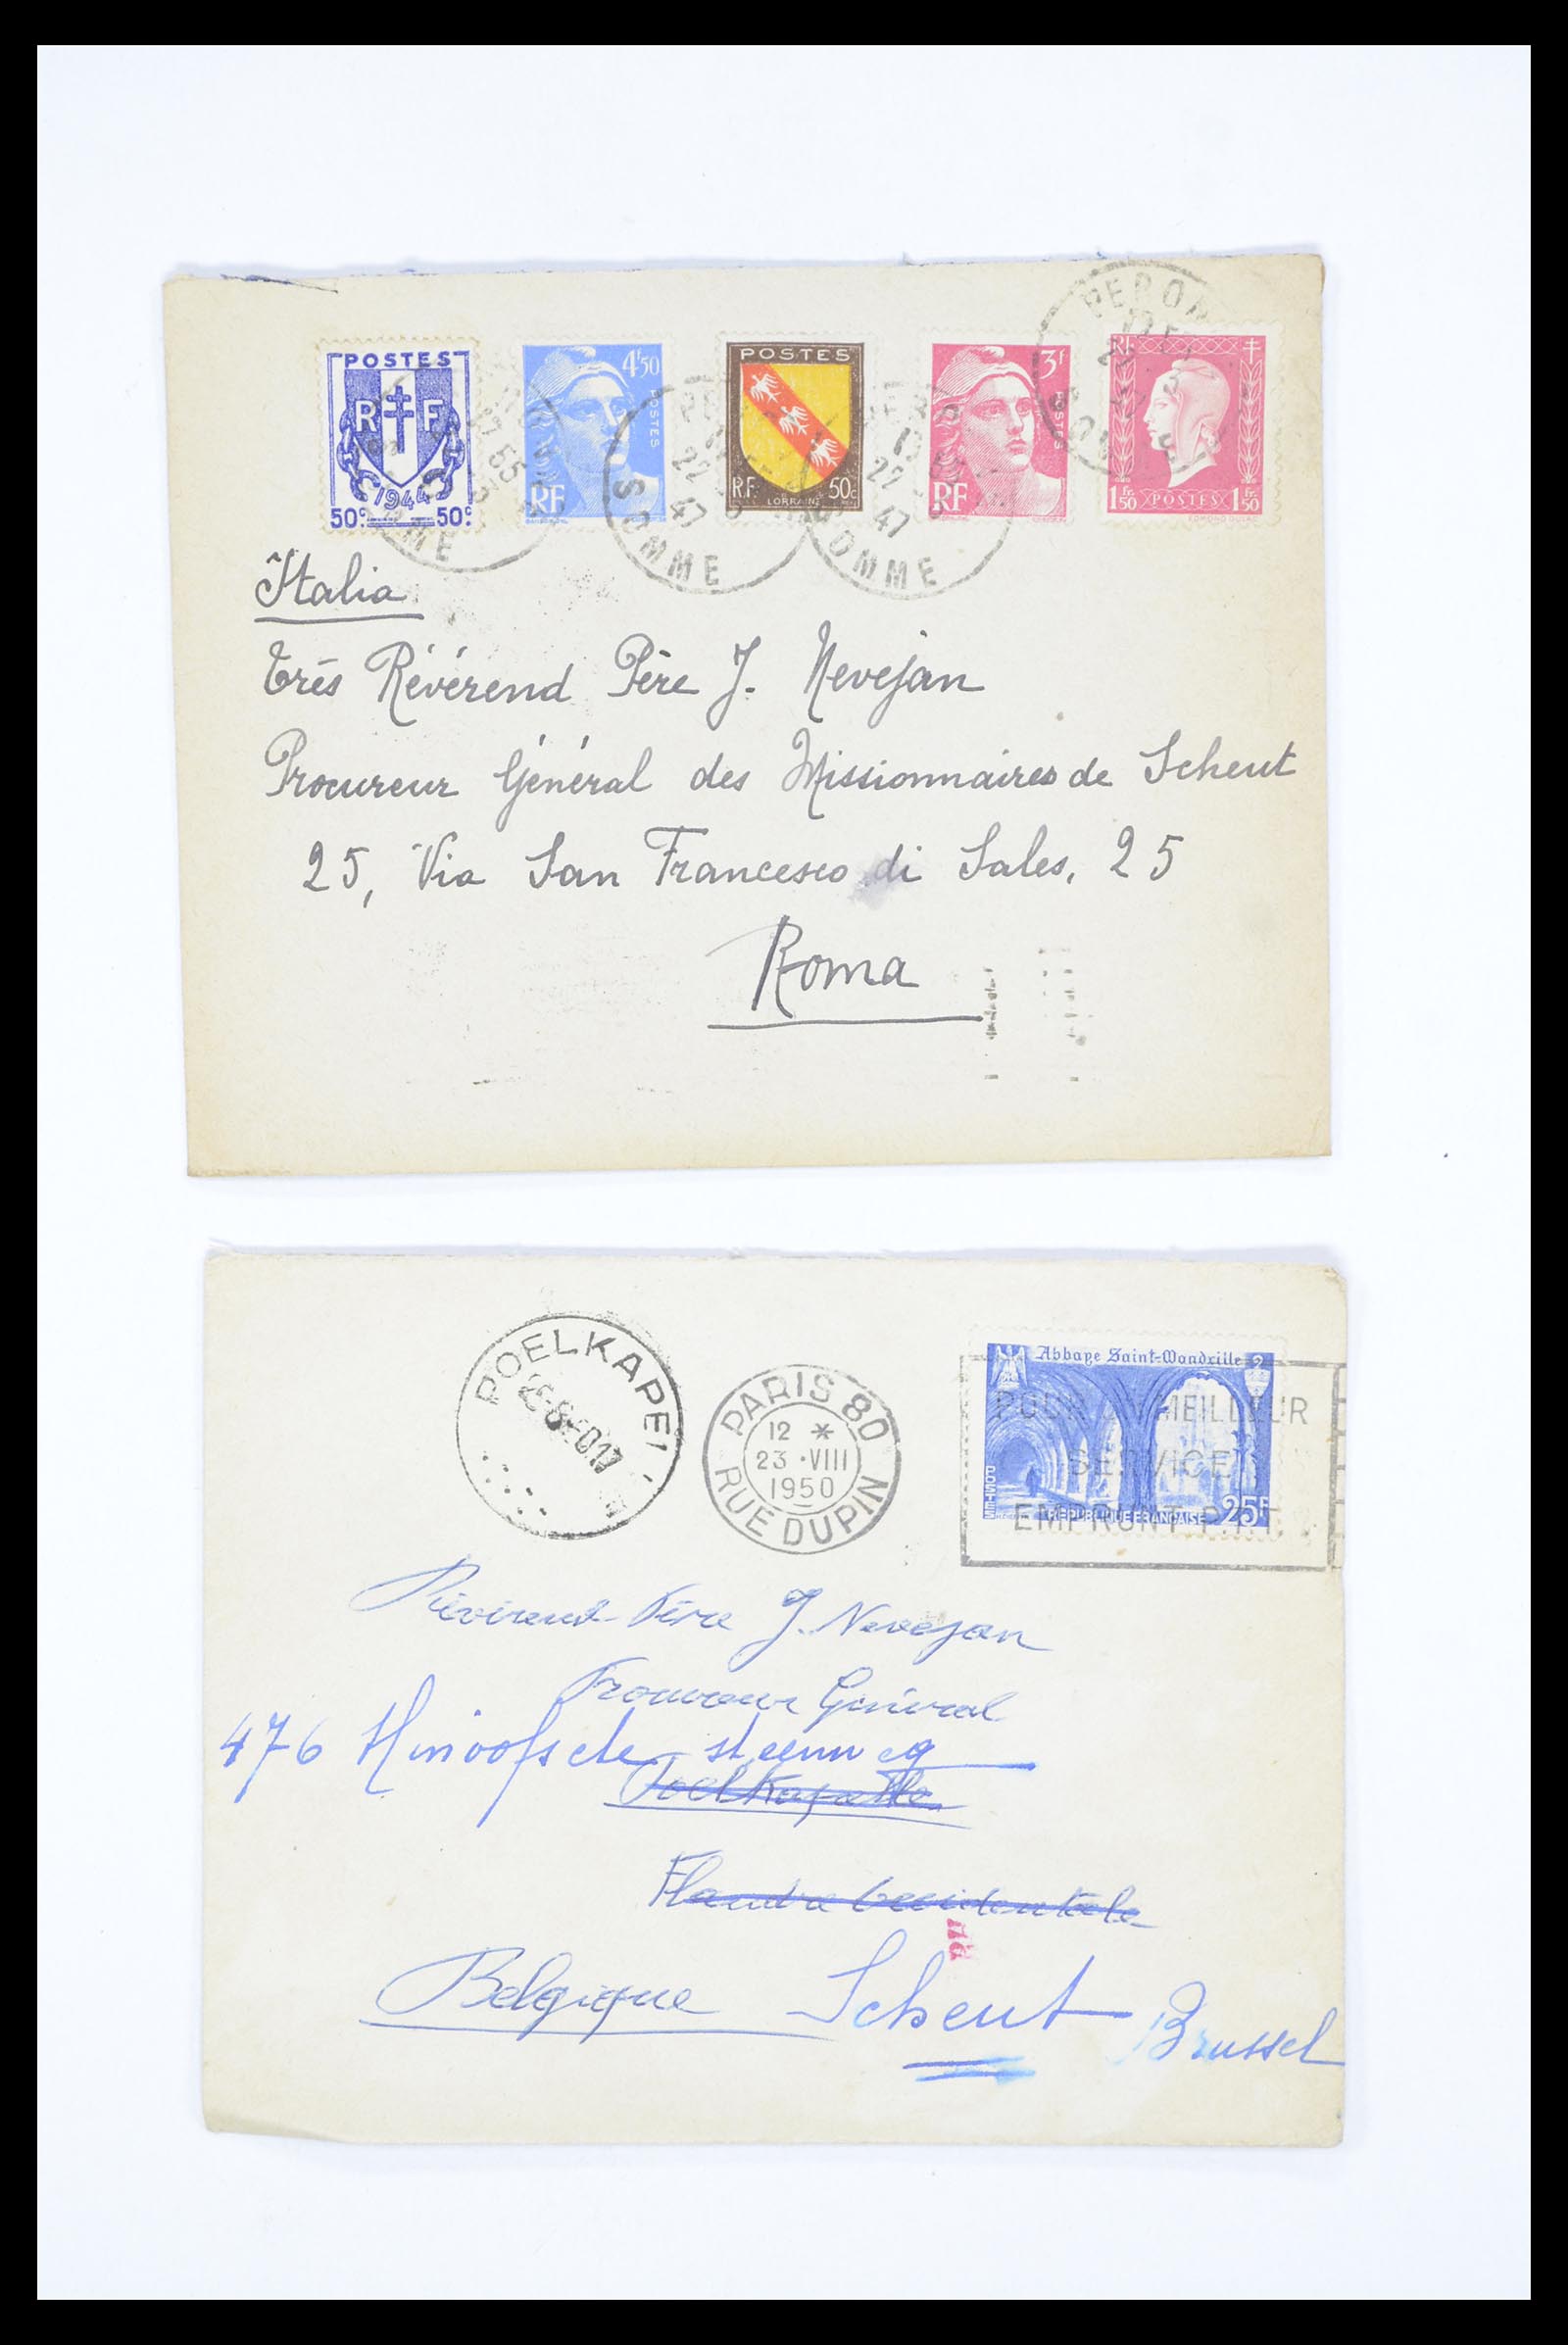 POSTES
R F
1944
50c 50c
4f50
POSTES
RF
POSTES
R.F. 50c
LORRAINE
3f
POSTES
RF
RF
1Fr50 POSTES 1Fr50
EDMOND DULAC
SOMME
22
47
SOMME
22
47
SOMME
Italia
Très Révérend Père J. Nevejan
Procureur Général des Missionnaires de Scheut
25, Via San Francesco di Sales, 25
Roma
POELKAPE
PARIS 80
12 *
23 · VIII
1950
RUE DUPIN
Abbaye Saint-Wandrille
POSTES
REPUBLIQUE FRANÇAISE 25F
POUR UN MEILLEUR
SERVICE
EMPRUNT P.T.T.
Révérend Père J. Nevejan
Procureur Général
476 Ninoofsche steenweg
Poelkapelle
Flandre Occidentale
Belgique Scheut
Brussel